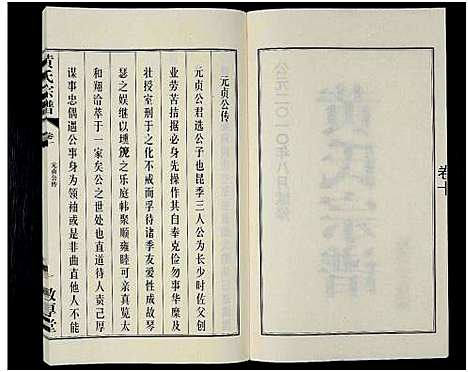 卷十
公元二〇一〇年八月续修
黄氏宗谱
元贞公传
元贞公君选公子也昆季三人公为长少时佐父创
业劳苦拮据必身先操作其自奉克俭勿事华糜及
壮授室刑于之化不戒而孚待诸季友爱性成故琴
瑟之娱继以埙篪之乐庭帏聚顺雍睦可亲真览太
和翔洽萃于一家矣公之世处也直道待人责己厚
谋事忠偶遇公事身为领袖或是非曲直他人不能
黄氏宗谱
卷一
元贞公传
敦厚堂